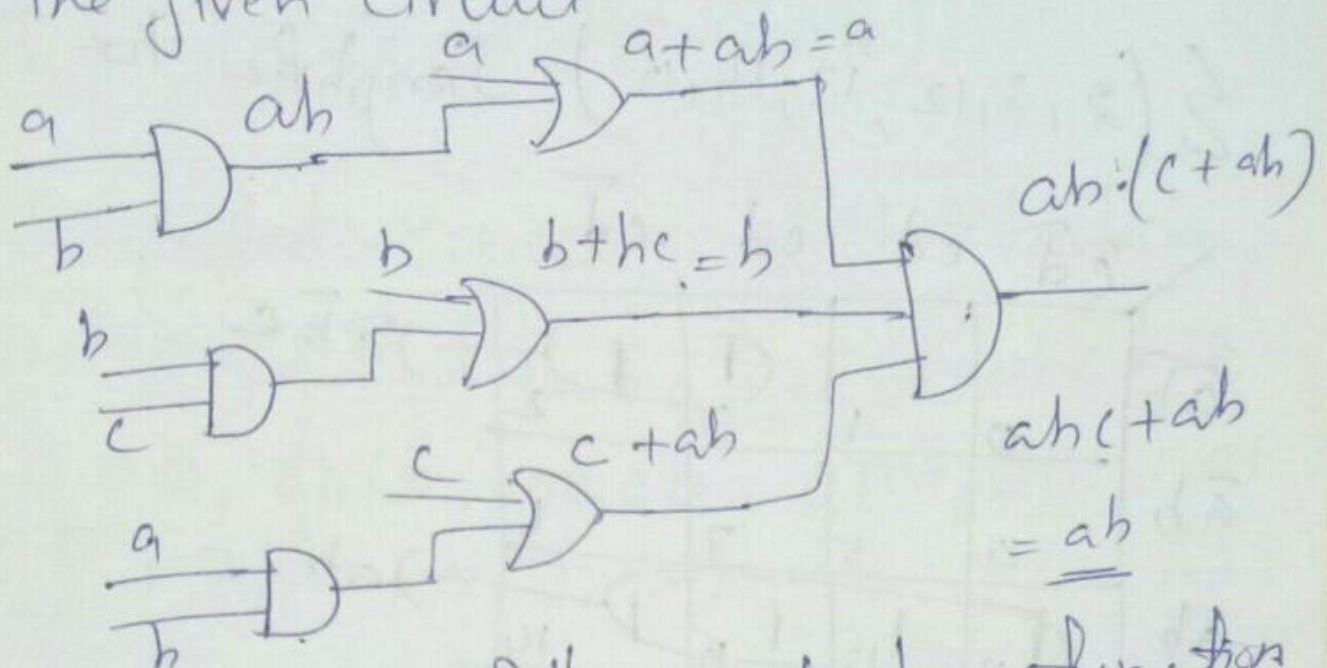 The given Circuit
a
a+ab=a
a
ab
b
ab.(c+ab)
b
b+bc=b
b
c
c
c+ab
abc+ab
= ab
a
b
function